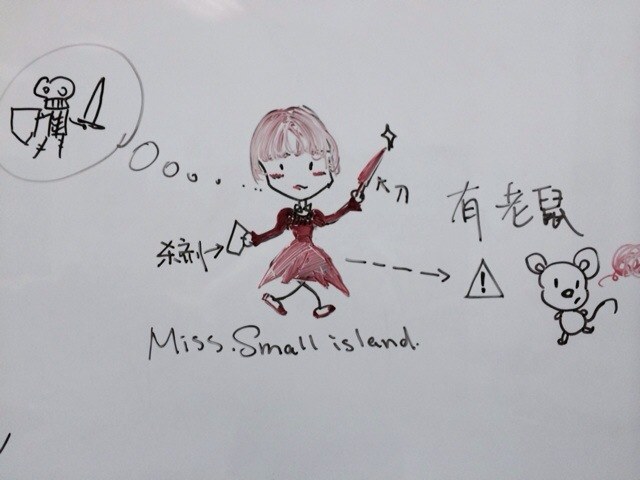 大刀
有老鼠
杀剂
!
Miss.Small island.